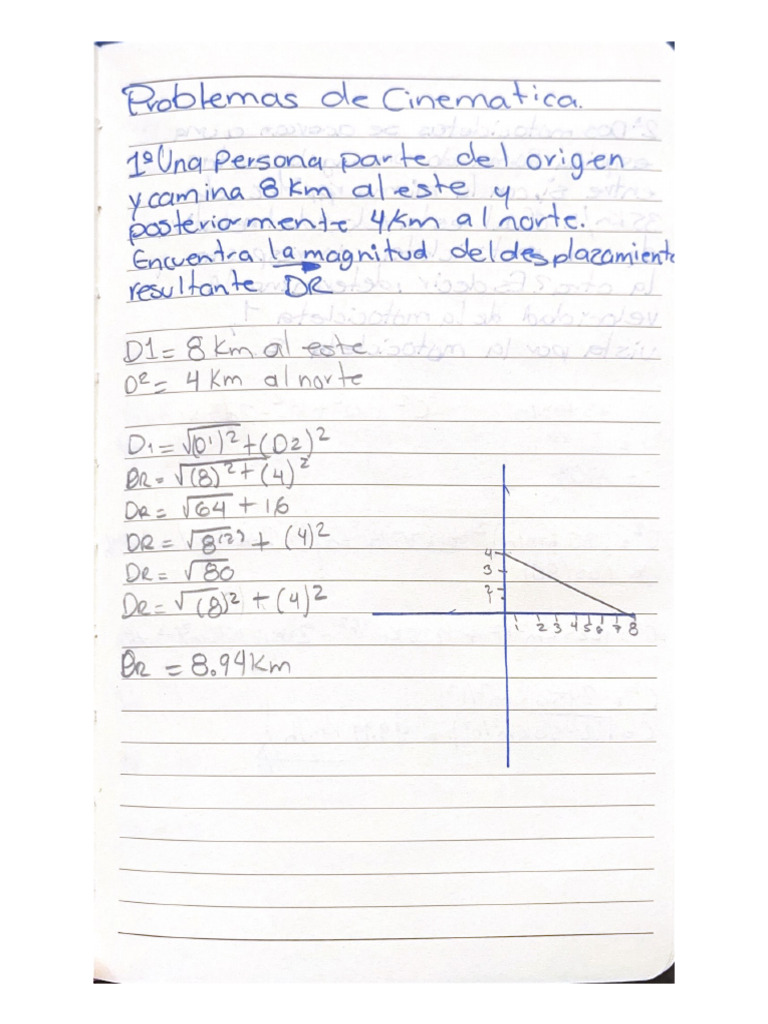 Problemas de Cinematica.
1º Una Persona parte del origen
y camina 8 km al este y
posteriormente 4 km al norte.
Encuentra la magnitud del desplazamiento
resultante DR
D1 = 8 km al este
D2 = 4 Km al norte
D1 = √(D1)² + (D2)²
DR = √(8)² + (4)²
DR = √64 + 16
DR = √8(2) + (4)²
DR = √80
DR = √(8)² + (4)²
DR = 8.94 Km
4
3
2
1
1 2 3 4 5 6 7 8